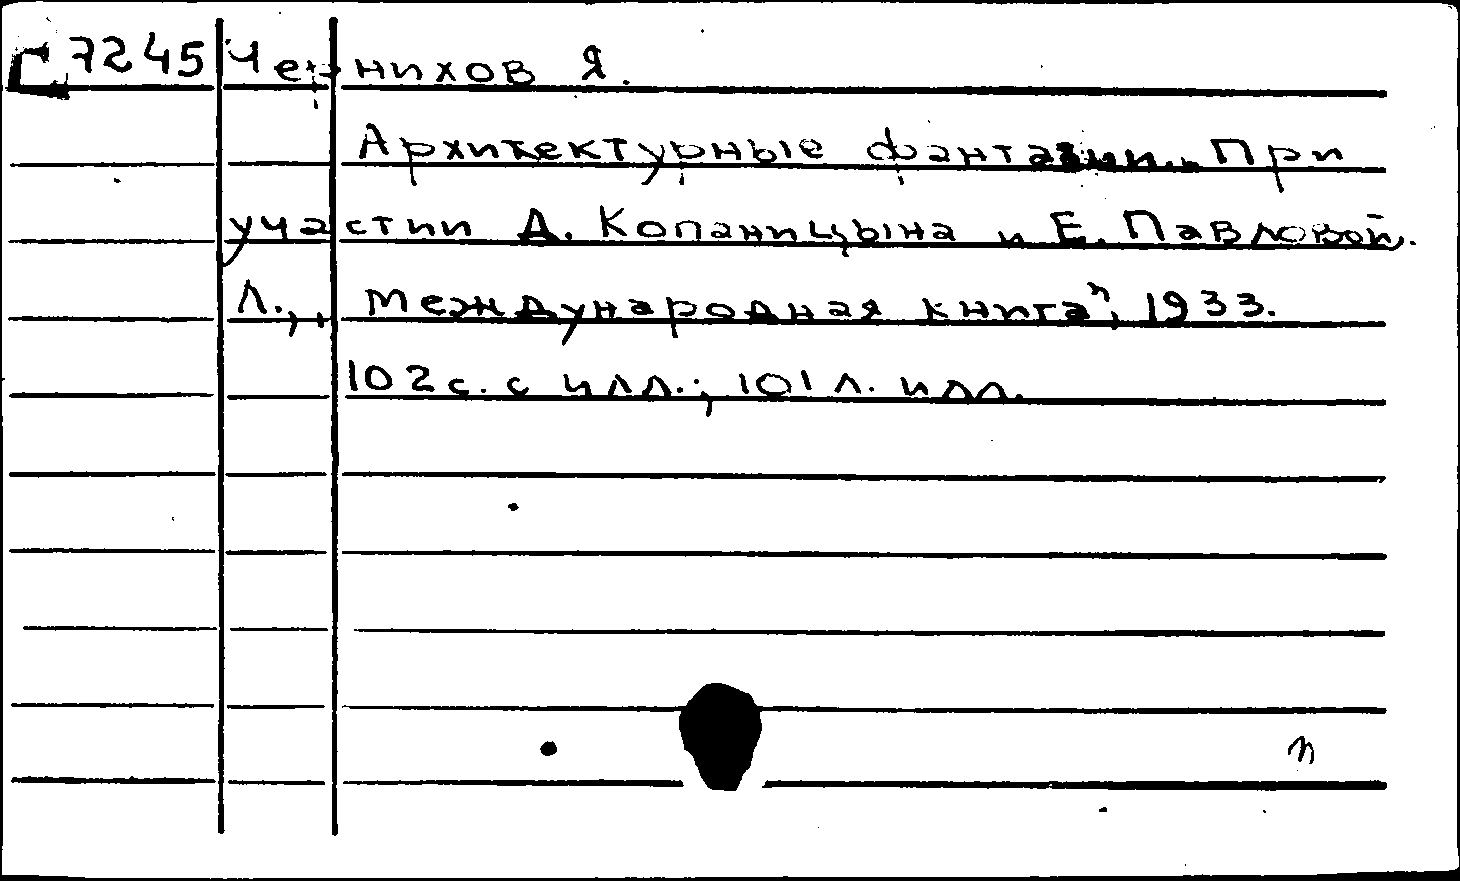 Г 7245 Чернихов Я.
Архитектурные фантазии. При
участии Д. Копаницына и Е. Павловой.
Л., „Международная книга", 1933.
102 с. с илл.; 101 л. илл.
п